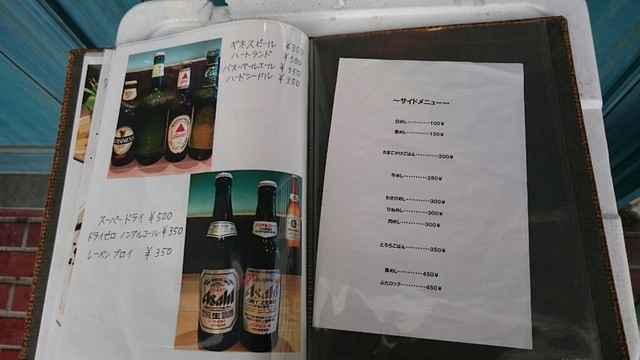 ギネスビール ¥350
ハートランド ¥500
バス・ペールエール ¥350
ハードシードル ¥350
GUINNESS
スーパードライ ¥500
ドライゼロ ノンアルコール ¥350
レーベンブロイ ¥350
Asahi
生
Asahi
DRY ZERO
～サイドメニュー～
白めし‥‥‥‥100¥
麦めし‥‥‥‥150¥
たまごかけごはん‥‥‥‥200¥
牛めし‥‥‥‥280¥
わさびめし‥‥‥‥300¥
ひねめし‥‥‥‥300¥
肉めし‥‥‥‥300¥
とろろごはん‥‥‥‥350¥
‥‥‥‥450¥
ぶたロック‥‥‥‥450¥